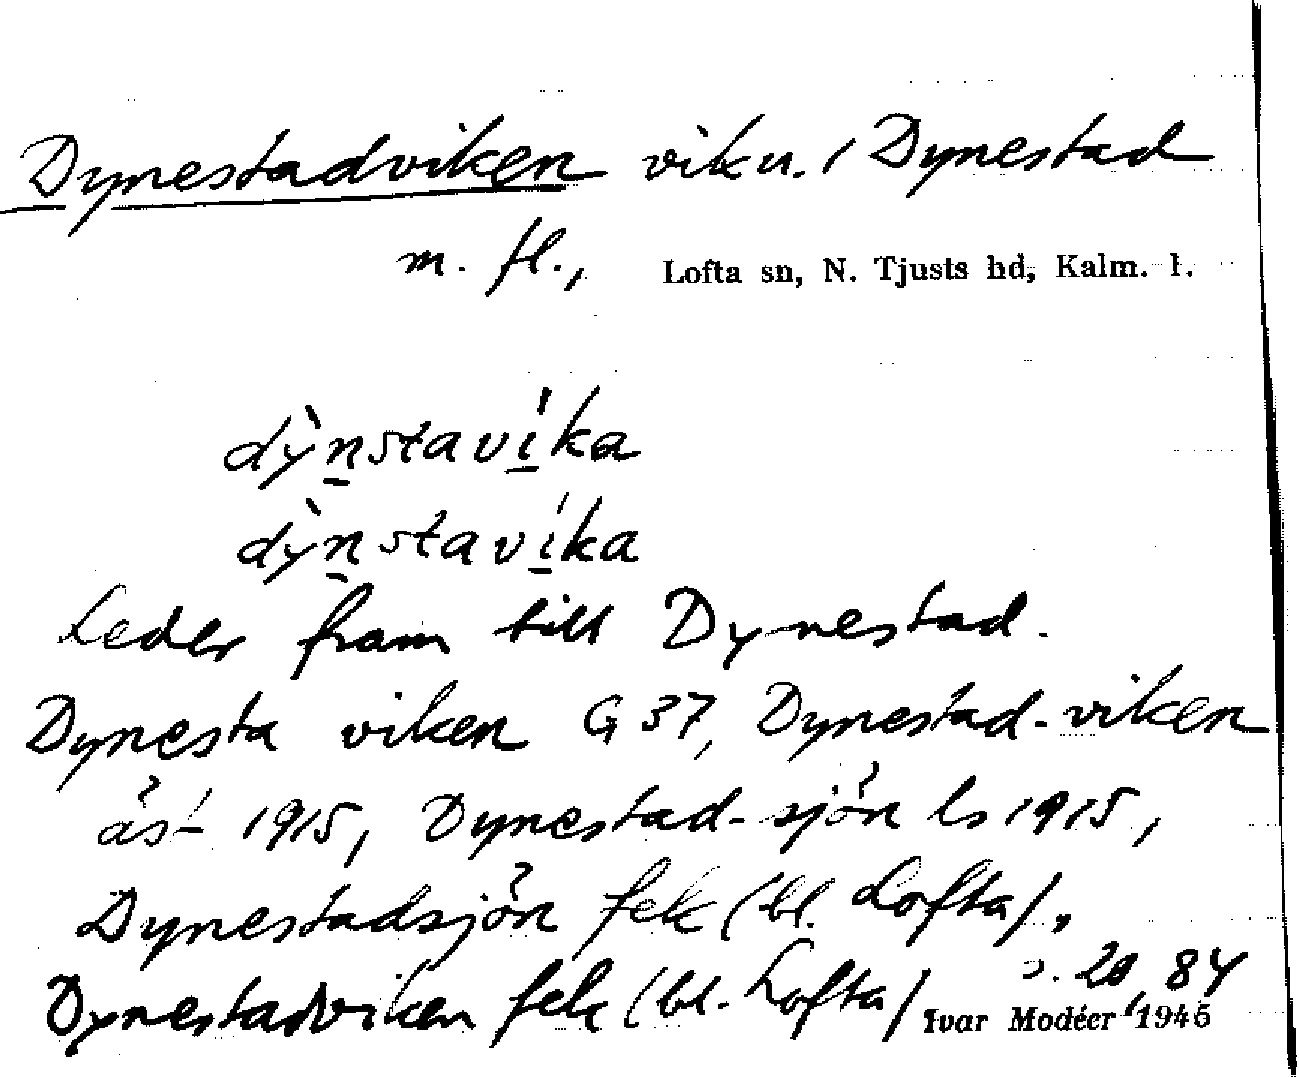 Dynestadviken vik u. / Dynestad
m. fl., Lofta sn, N. Tjusts hd, Kalm. l.
dỳnstavíka
dỳnstavíka
Leder fram till Dynestad.
Dynesta viken G 37, Dynestad-viken
1915, Dynestad-sjön ls 1915,
Dynestadsjön fek (bl. Lofta),
Dynestadviken fek (bl. Lofta) s. 20, 84
Ivar Modéer 1946